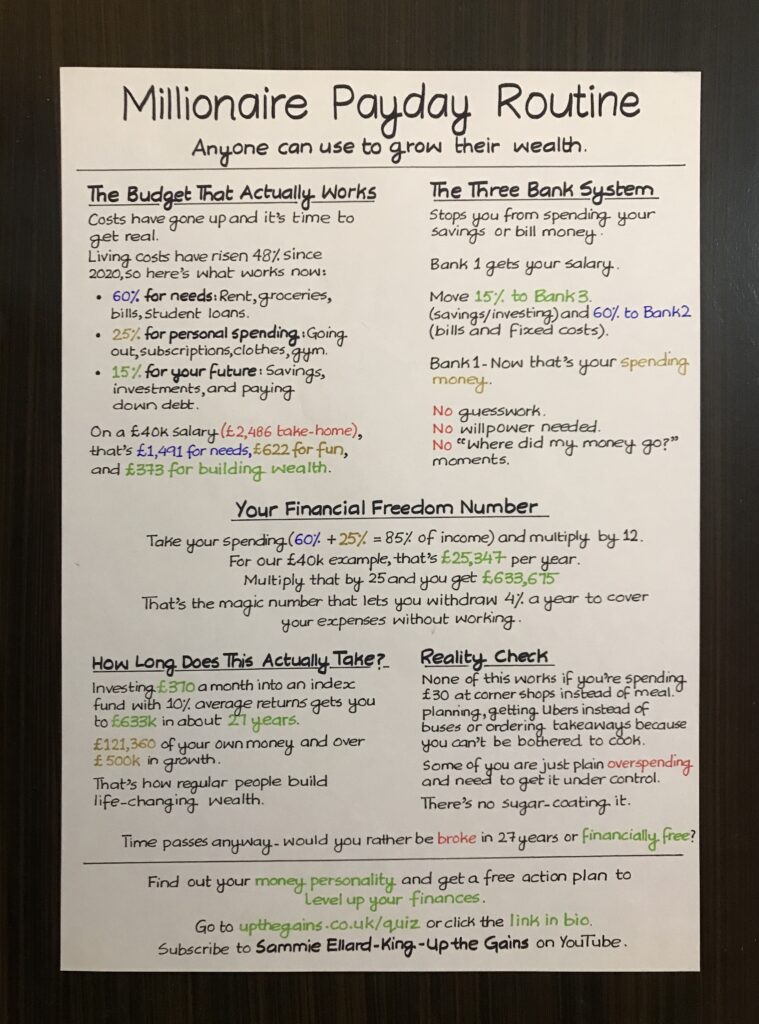 Millionaire Payday Routine
Anyone can use to grow their wealth.
The Budget That Actually Works
Costs have gone up and it's time to
get real.
Living costs have risen 48% since
2020, so here's what works now:
• 60% for needs: Rent, groceries,
bills, student loans.
• 25% for personal spending: Going
out, subscriptions, clothes, gym.
• 15% for your future: Savings,
investments, and paying
down debt.
On a £40k salary (£2,486 take-home),
that's £1,491 for needs, £622 for fun,
and £373 for building wealth.
The Three Bank System
Stops you from spending your
savings or bill money.
Bank 1 gets your salary.
Move 15% to Bank 3.
(savings/investing) and 60% to Bank 2
(bills and fixed costs).
Bank 1 - Now that's your spending
money.
No guesswork.
No willpower needed.
No "where did my money go?"
moments.
Your Financial Freedom Number
Take your spending (60% + 25% = 85% of income) and multiply by 12.
For our £40k example, that's £25,347 per year.
Multiply that by 25 and you get £633,675
That's the magic number that lets you withdraw 4% a year to cover
your expenses without working.
How Long Does This Actually Take?
Investing £370 a month into an index
fund with 10% average returns gets you
to £633k in about 27 years.
£121,360 of your own money and over
£500k in growth.
That's how regular people build
life-changing wealth.
Reality Check
None of this works if you're spending
£30 at corner shops instead of meal.
planning, getting Ubers instead of
buses or ordering takeaways because
you can't be bothered to cook.
Some of you are just plain overspending
and need to get it under control.
There's no sugar-coating it.
Time passes anyway - would you rather be broke in 27 years or financially free?
Find out your money personality and get a free action plan to
level up your finances.
Go to upthegains.co.uk/quiz or click the link in bio.
Subscribe to Sammie Ellard-King - Up the Gains on YouTube.